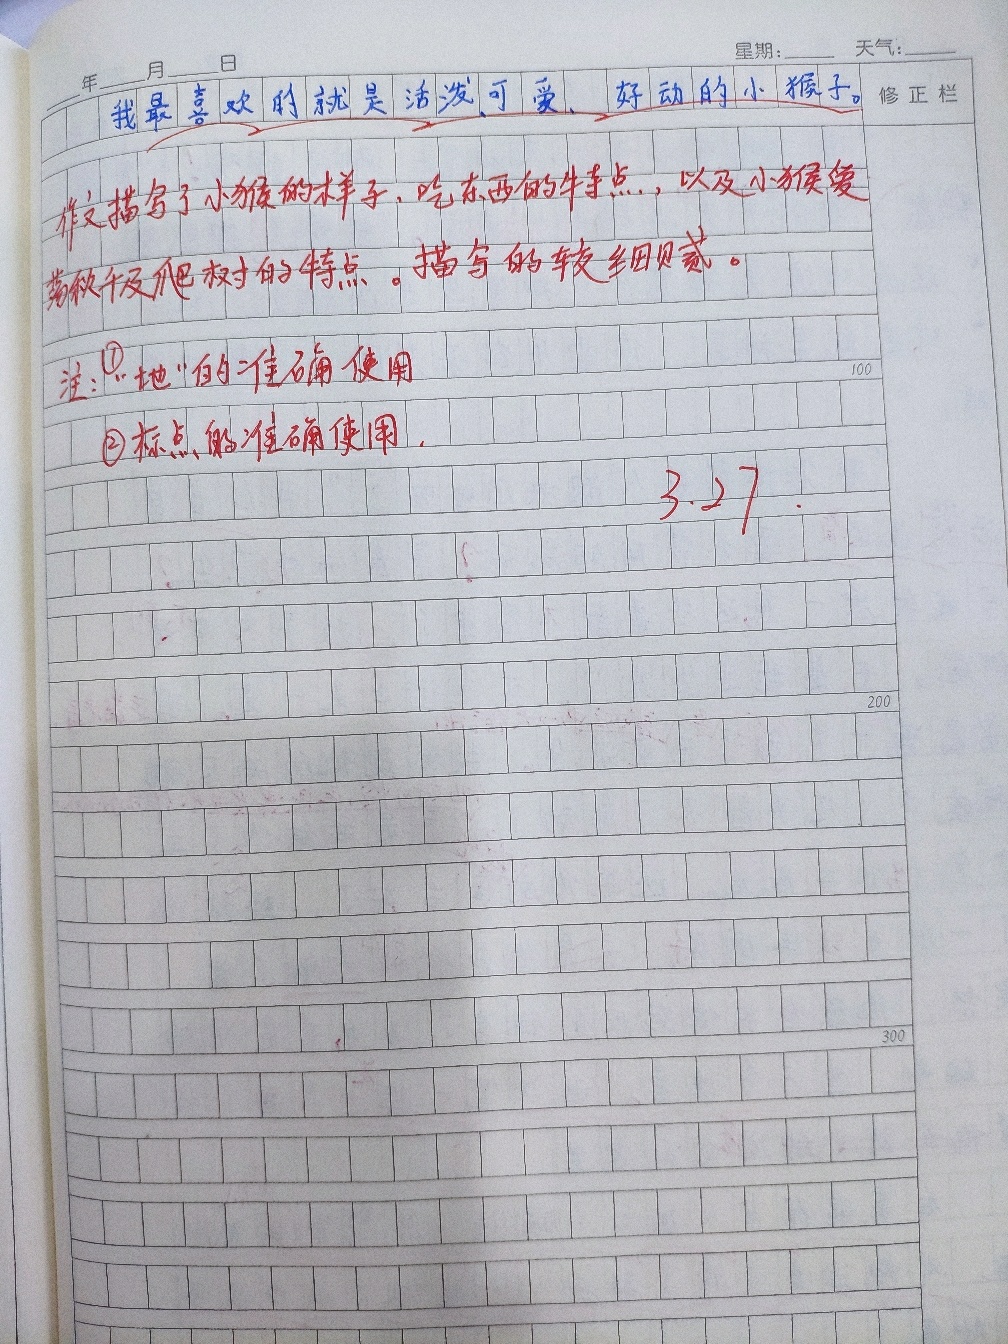 年 月 日 星期: 天气:
我最喜欢的就是活泼、可爱、好动的小猴子。 修正栏
作文描写了小猴的样子、吃东西的特点，以及小猴爱
荡秋千及爬树的特点。描写的较细腻。
注：①“地”的准确使用 100
②标点的准确使用.
3.27.
200
300